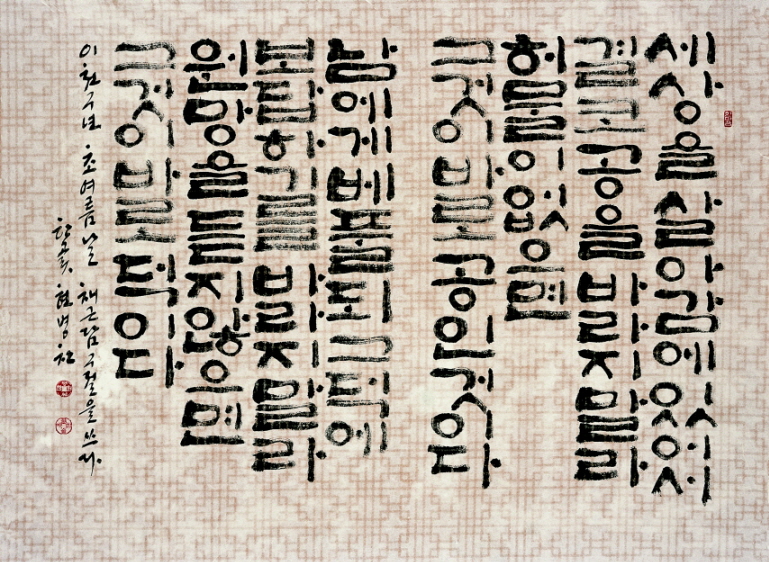 세상을 살아감에 있어서
결코 공을 바라지 말라
허물이 없으면
그것이 바로 공인 것이다
남에게 베풀되 그 덕에
보답하기를 바라지 말라
원망을 듣지 않으면
그것이 바로 덕이다
이천구년 초여름날 채근담 구절을 쓰다.
한곬 현병찬